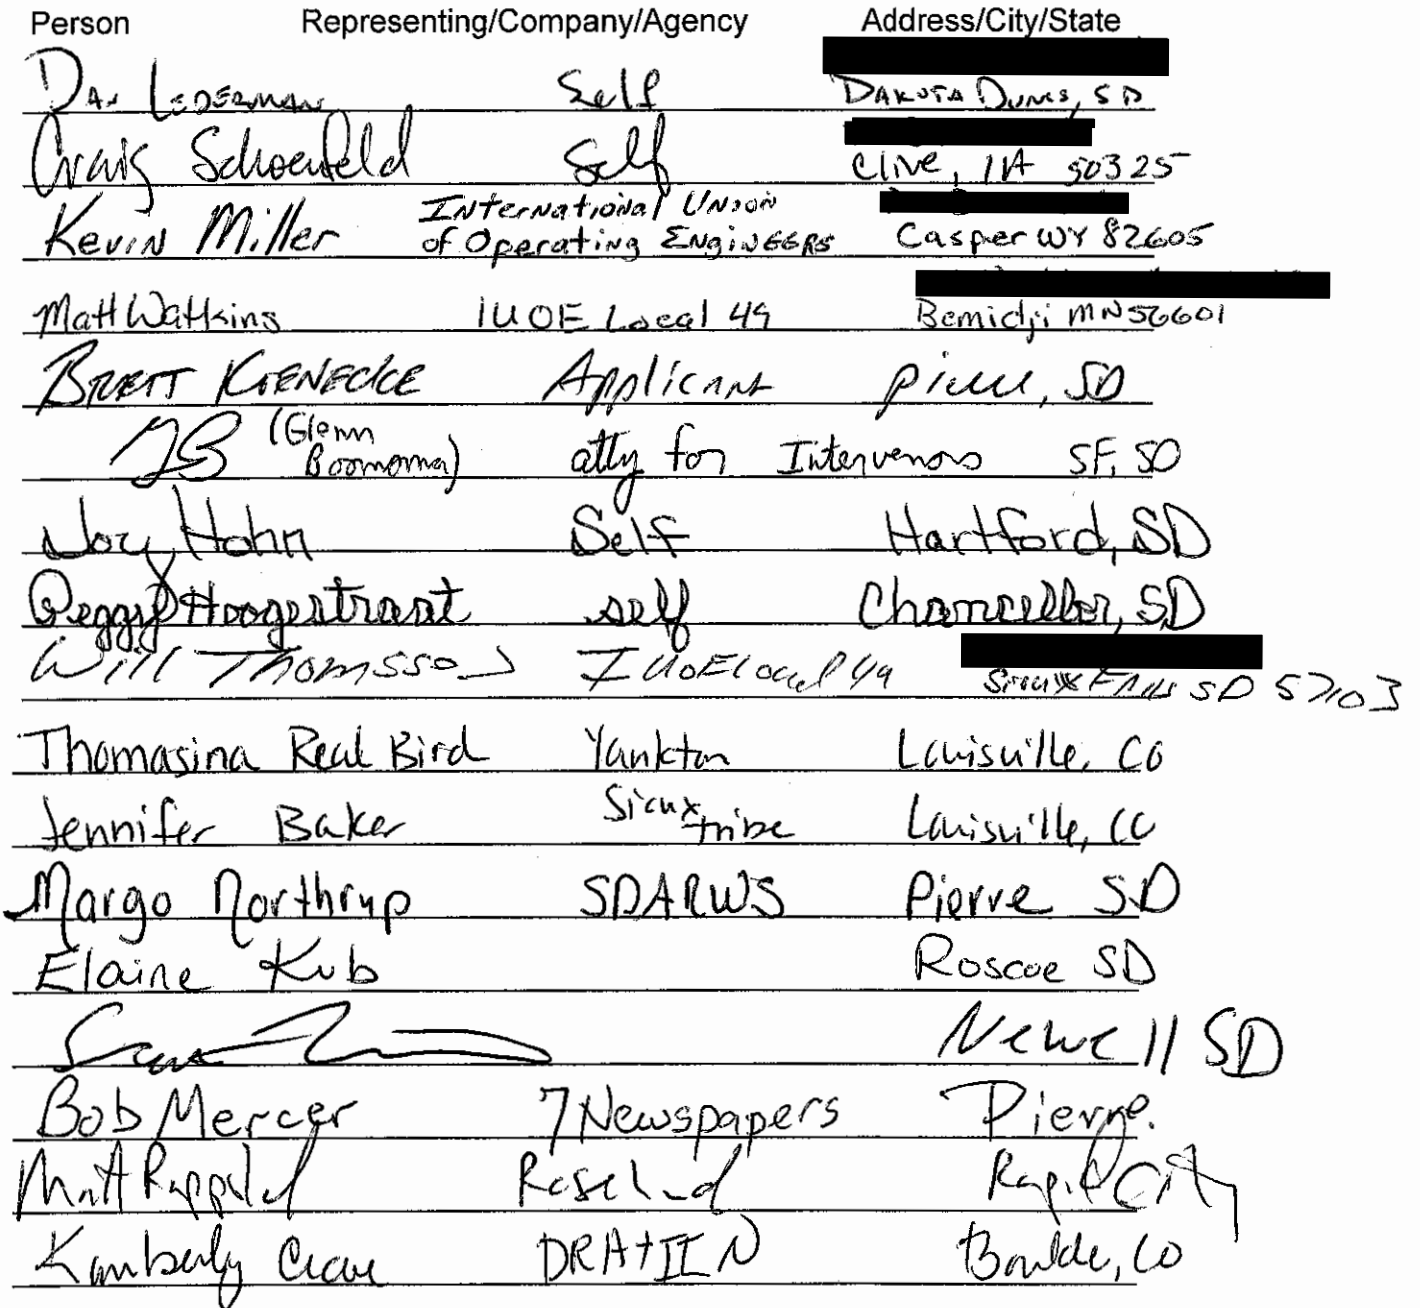 Person Representing/Company/Agency Address/City/State
Dan Lederman Self Dakota Dunes, SD
Craig Schoenfeld Self Clive, IA 50325
Kevin Miller International Union of Operating Engineers Casper WY 82605
Matt Watkins IUOE Local 49 Bemidji MN 56601
Brett Koenecke Applicant Pierre, SD
(Glenn Boomsma) atty for Intervenors SF, SD
Joy Hohn Self Hartford, SD
Peggy Hoogestraat self Chancellor, SD
Will Thomsson IUOE Local 49 Sioux Falls SD 57103
Thomasina Real Bird Yankton Louisville, CO
Jennifer Baker Sioux tribe Louisville, CO
Margo Northrup SDARWS Pierre SD
Elaine Kub Roscoe SD
Newell SD
Bob Mercer 7 Newspapers Pierre.
Matt Rappold Rosebud Rapid City
Kimberly Craven DRA + IEN Boulder, CO